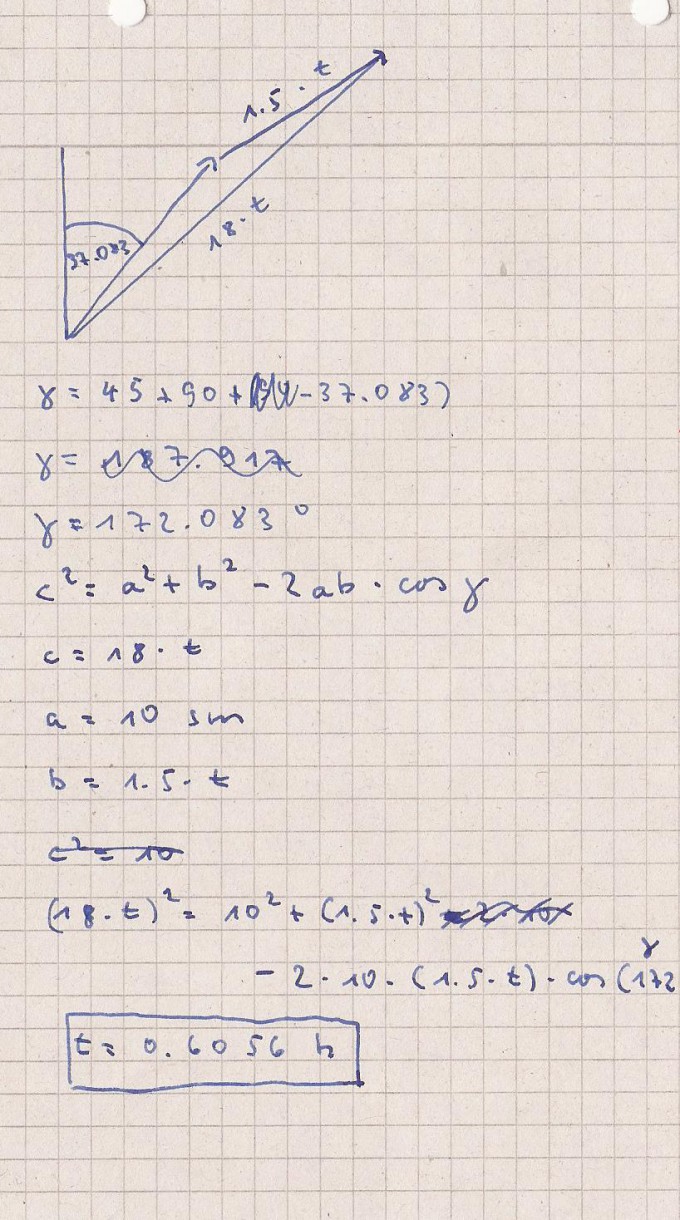 1.5 · t
18 · t
37.083
γ = 45 + 90 + - 37.083)
γ = 187.917
γ = 172.083°
c² = a² + b² - 2ab · cos γ
c = 18 · t
a = 10 sm
b = 1.5 · t
c² = 10
(18 · t)² = 10² + (1.5 · t)² - 2 · 10
γ
- 2 · 10 · (1.5 · t) · cos (172
t = 0.6056 h